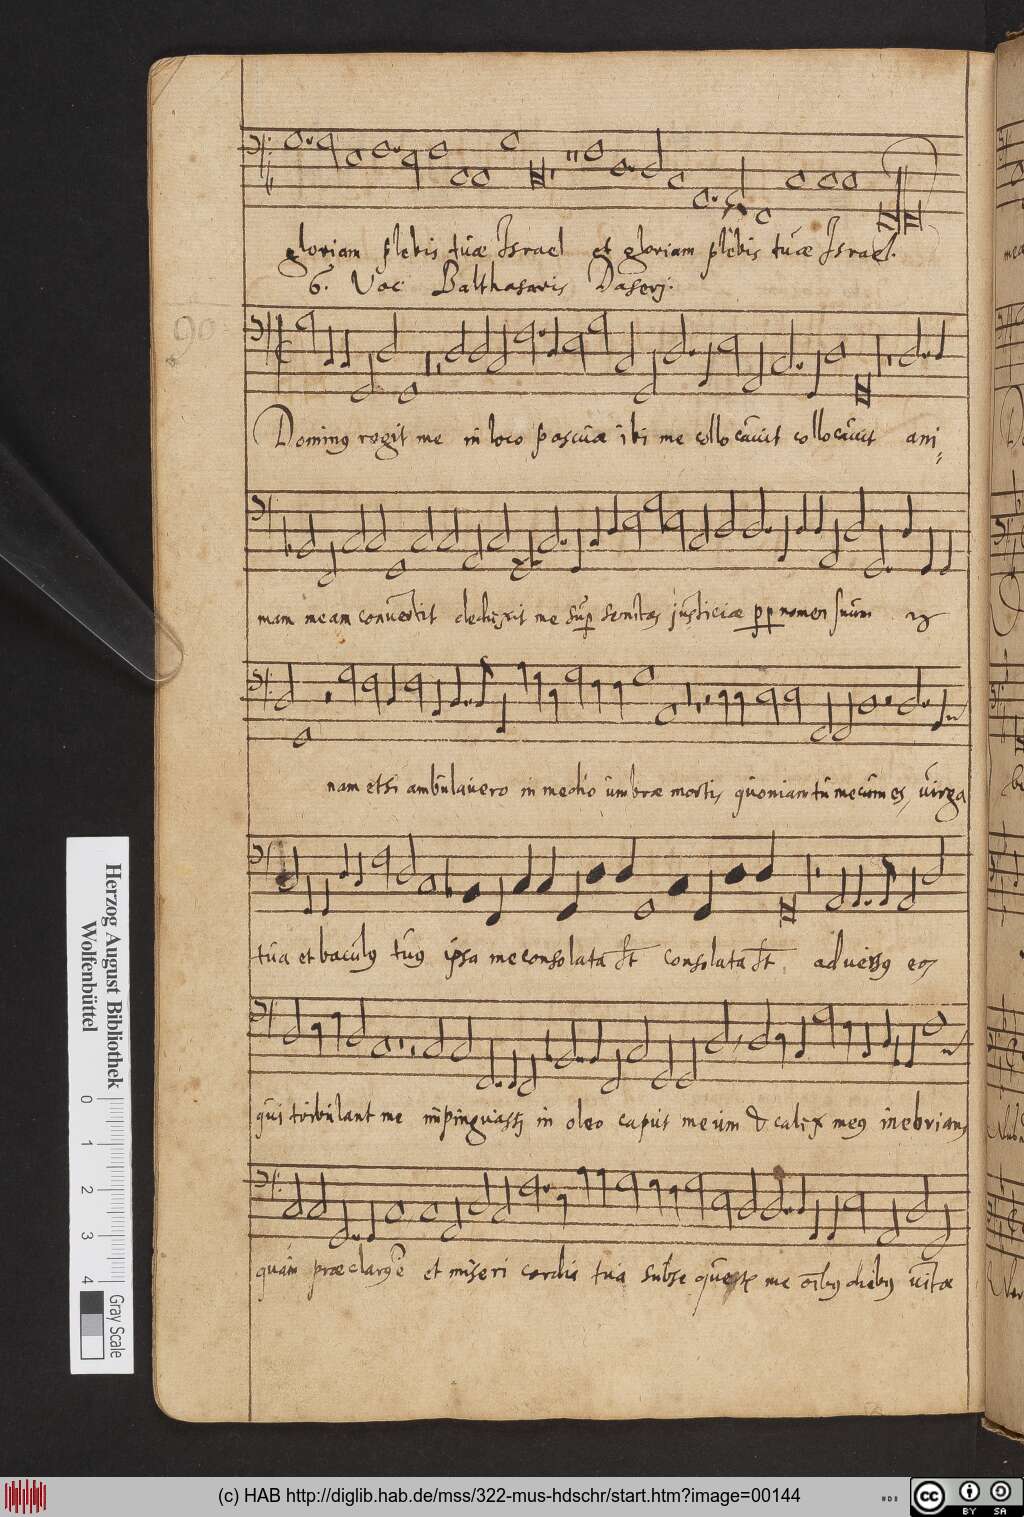 gloriam plebis tuæ Israel et gloriam plebis tuæ Israel.
6. Voc: Balthasaris Daserj:
90
Dominꝰ regit me in loco pascuæ ibi me collocauit collocauit ani⸗
mam meam conuertit deduxit me sup semitas justiciæ pp nomen suum
nam etsi ambulauero in medio umbræ mortis quoniam tu mecum es, uirga
tua et baculꝰ tuꝰ ipsa me consolata st consolata st aduersꝰ eos
qui tribulant me impinguasti in oleo caput meum & calix meꝰ inebrians
quam præclarꝰ e et misericordia tua subse me oibꝰ diebꝰ uitæ
Herzog August Bibliothek
Wolfenbüttel
0 1 2 3 4
Gray Scale
(c) HAB http://diglib.hab.de/mss/322-mus-hdschr/start.htm?image=00144
cc BY SA